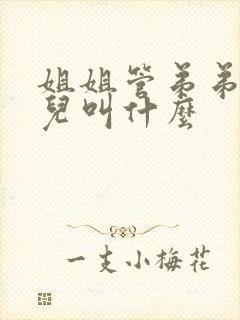 姐姐管弟弟
兒叫什麼
一支小梅花